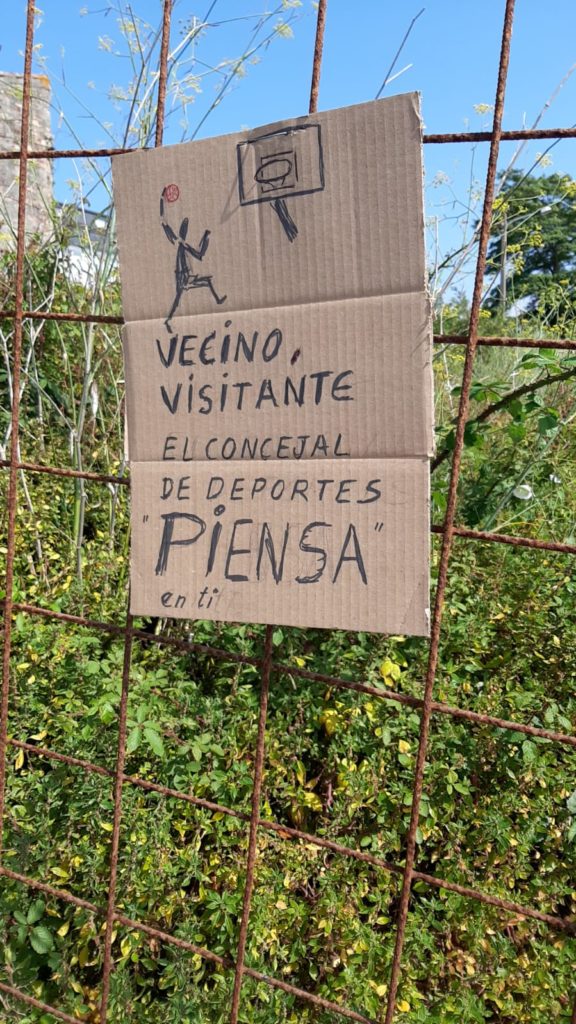 VECINO,
VISITANTE
EL CONCEJAL
DE DEPORTES
"PiENSA"
en ti